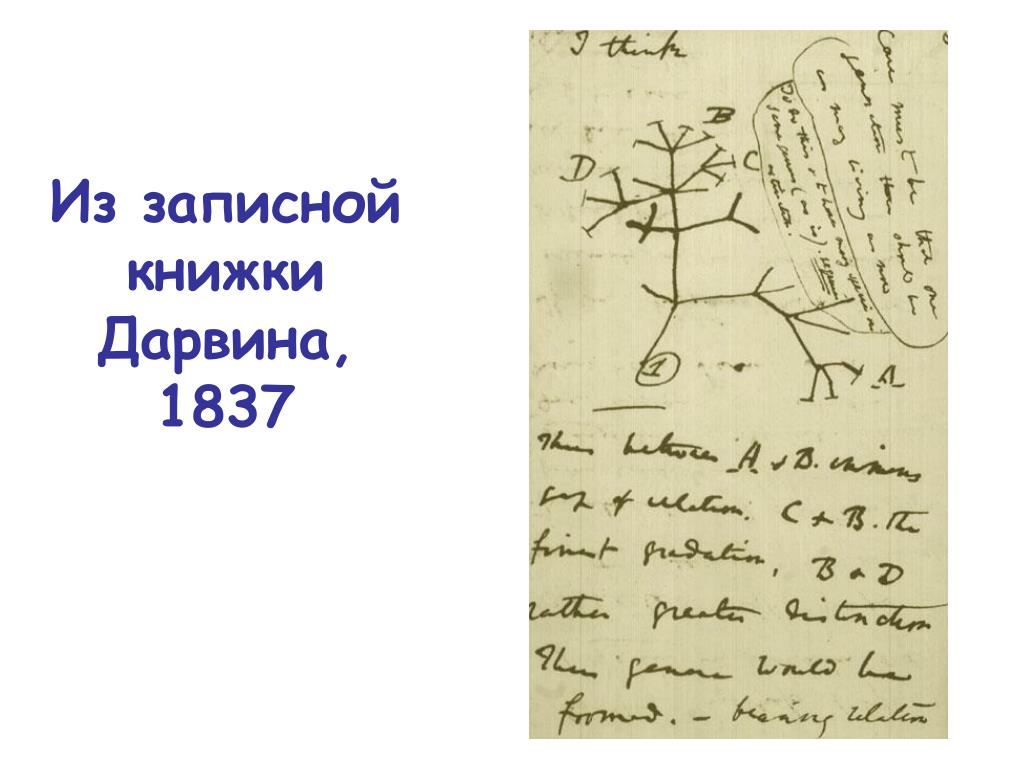 Из записной
книжки
Дарвина,
1837
I think
B
C
D
1
A
Case must be that one
generation then should be
as many living as now
To do this & to have many species in
same genus (as is). requires
extinction.
Thus between A & B. immense
gap of relation. C & B. the
finest gradation, B & D
rather greater distinction
Thus genera would be
formed. — bearing relation